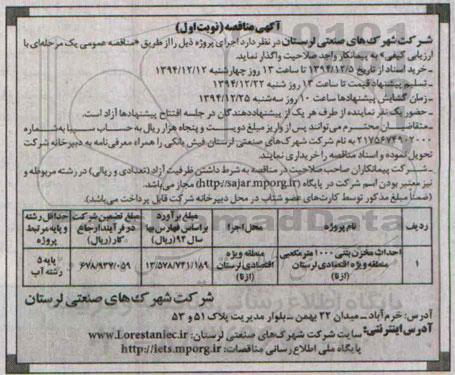 آگهی مناقصه (نوبت اول)
شرکت شهرک‌های صنعتی لرستان در نظر دارد اجرای پروژه ذیل را از طریق «مناقصه عمومی یک مرحله‌ای با
ارزیابی کیفی» به پیمانکار واجد صلاحیت واگذار نماید.
-خرید اسناد از تاریخ ۱۳۹۴/۱۲/۵ تا ساعت ۱۳ روز چهارشنبه ۱۳۹۴/۱۲/۱۲
-تسلیم پیشنهاد قیمت تا ساعت ۱۳ روز شنبه ۱۳۹۴/۱۲/۲۲
-زمان گشایش پیشنهادها ساعت ۱۰ روز سه‌شنبه ۱۳۹۴/۱۲/۲۵
-حضور یک‌نفر نماینده از طرف هر یک از پیشنهاددهندگان در جلسه افتتاح پیشنهادها آزاد است.
-متقاضیان محترم می‌توانند پس از واریز مبلغ دویست و پنجاه هزار ریال به حساب سیبا به‌شماره
۲۱۷۵۶۷۴۹۰۲۰۰۰ به نام شرکت شهرک‌های صنعتی لرستان فیش بانکی را همراه معرفی‌نامه به دبیرخانه شرکت
تحویل نموده و اسناد مناقصه را خریداری نمایند.
-شرکت پیمانکاران صاحب صلاحیت در مناقصه به شرط داشتن ظرفیت آزاد (تعدادی و ریالی) در رشته مربوطه و
نیز معتبر بودن اسم شرکت در پایگاه (http://sajar.mporg.ir) مجاز می‌باشد.
(ضمناً مبلغ مذکور توسط کارت‌های عضو شتاب در محل دبیرخانه شرکت قابل پرداخت می‌باشد.)
ردیف | نام پروژه | محل اجرا | مبلغ برآورد براساس فهارس بها سال ۹۴ (ریال) | مبلغ تضمین شرکت در فرآیند ارجاع کار (ریال) | حداقل رشته و پایه مرتبط پروژه
۱ | احداث مخزن بتنی ۱۰۰۰ مترمکعبی منطقه ویژه اقتصادی لرستان (ازنا) | منطقه ویژه اقتصادی لرستان (ازنا) | ۱۳/۵۷۸/۷۴۱/۱۸۹ | ۶۷۸/۹۳۷/۰۵۹ | پایه ۵ رشته آب
شرکت شهرک‌های صنعتی لرستان
آدرس: خرم‌آباد - میدان ۲۲ بهمن - بلوار مدیریت پلاک ۵۱ و ۵۳
آدرس اینترنتی: سایت شرکت شهرک‌های صنعتی لرستان: www.Lorestaniec.ir
پایگاه ملی اطلاع‌رسانی مناقصات: http://iets.mporg.ir